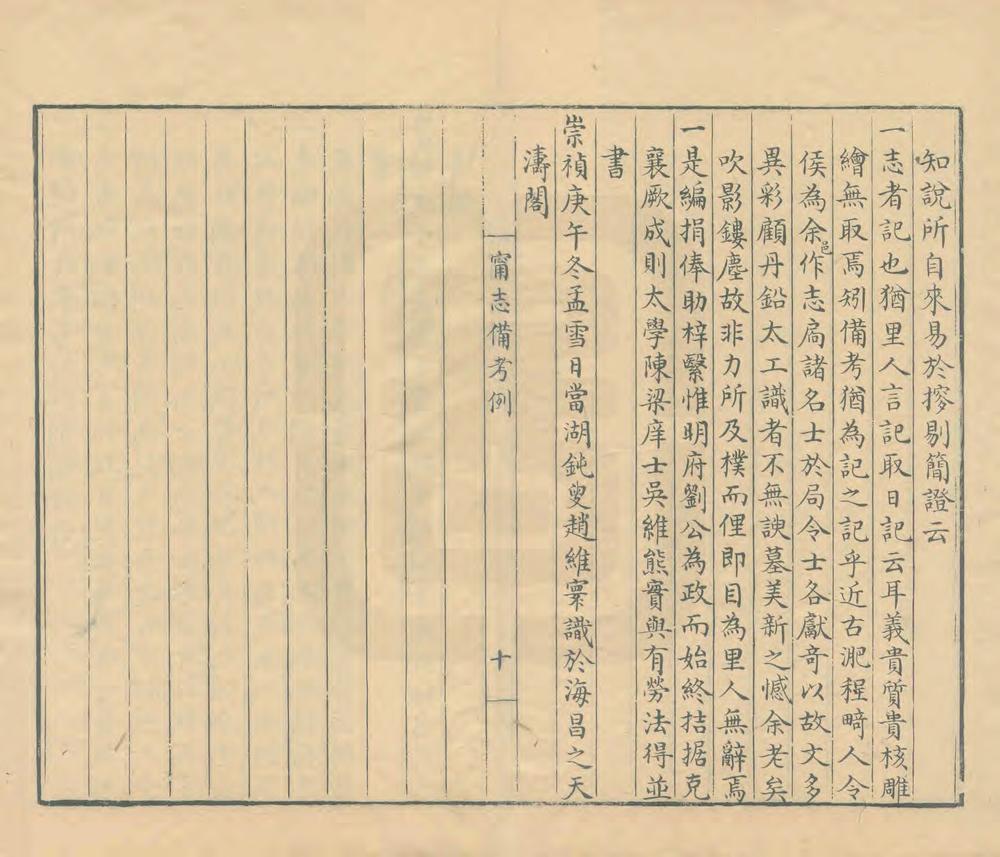 知說所自來易於摎剔簡證云
一志者記也猶里人言記取日記云耳義貴質貴核雕
繪無取焉矧備考猶為記之記乎近古淝程畸人令
侯為余邑作志扃諸名士於局令士各獻奇以故文多
異彩顧丹鉛太工識者不無諛墓美新之憾余老矣
吹影鏤塵故非力所及樸而俚即目為里人無辭焉
一是編捐俸助梓繄惟明府劉公為政而始終拮据克
襄厥成則太學陳梁庠士吳維熊實與有勞法得並
書
崇禎庚午冬孟雪日當湖鈍叟趙維寀識於海昌之天
濤閣
甯志備考例
十